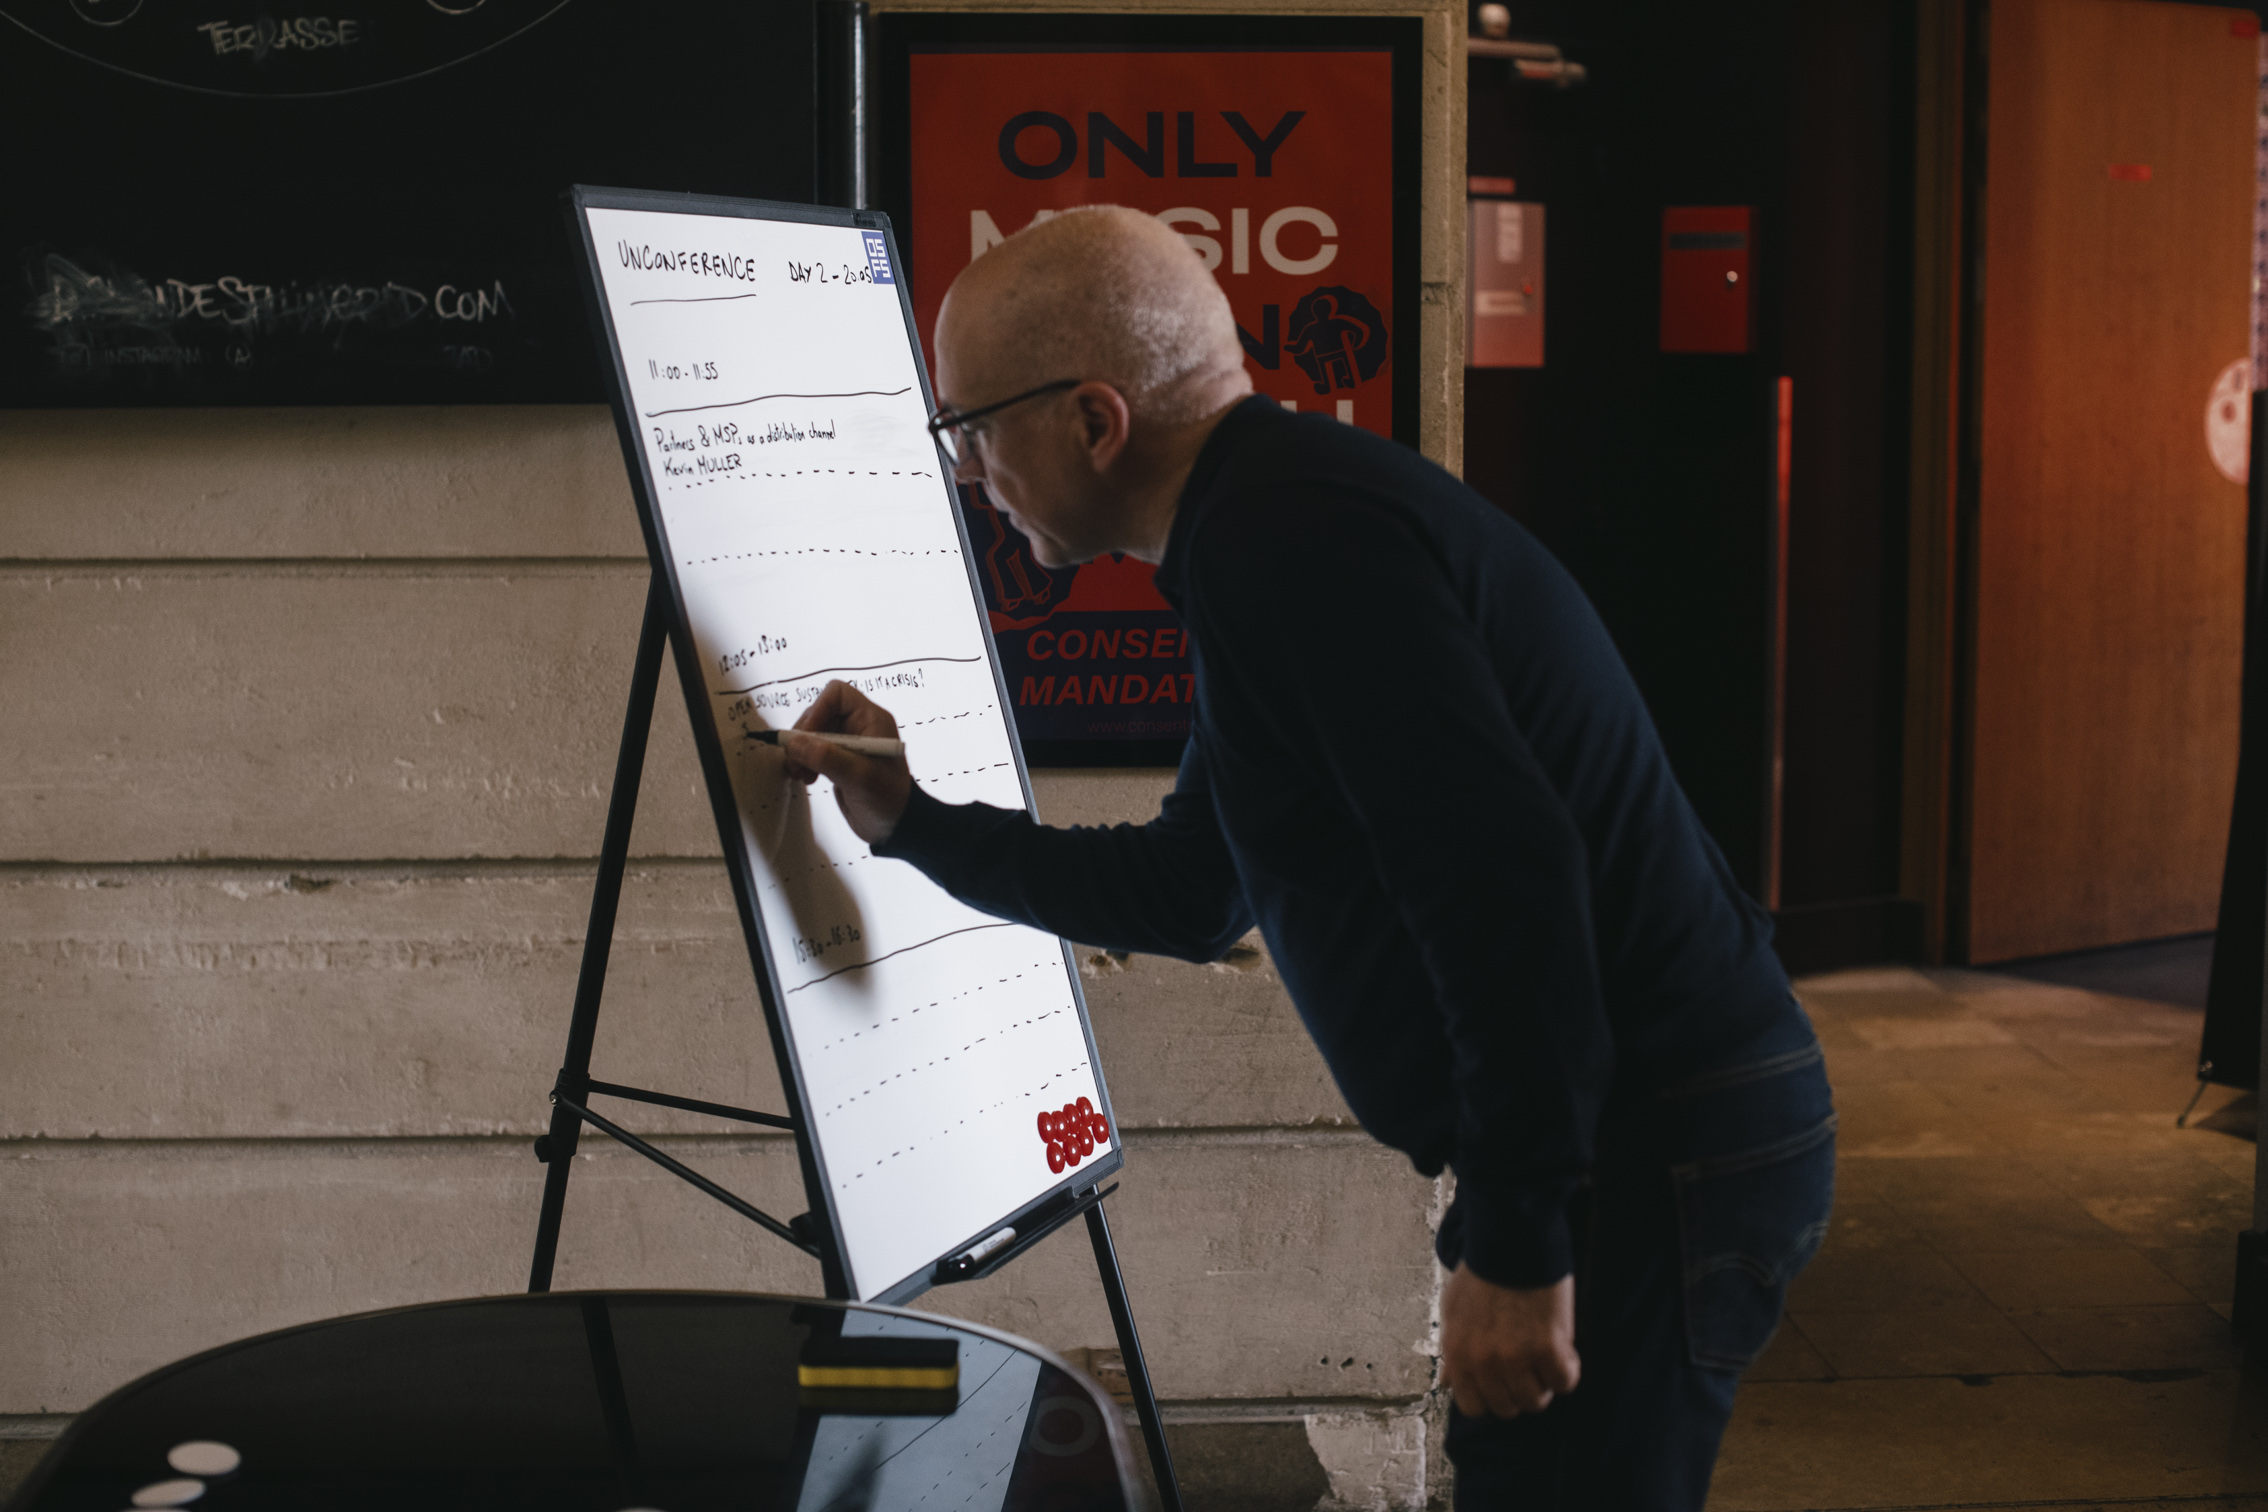 TERRASSE
.COM
INSTAGRAM
UNCONFERENCE
DAY 2 - 20.05
OS
FS
11:00 - 11:55
Partners & MSPs as a distribution channel
Kevin MULLER
12:05 - 13:00
OPEN SOURCE IS IT A CRISIS?
15:30 - 16:30
ONLY
MUSIC
CONSE
MANDAT
www.consent